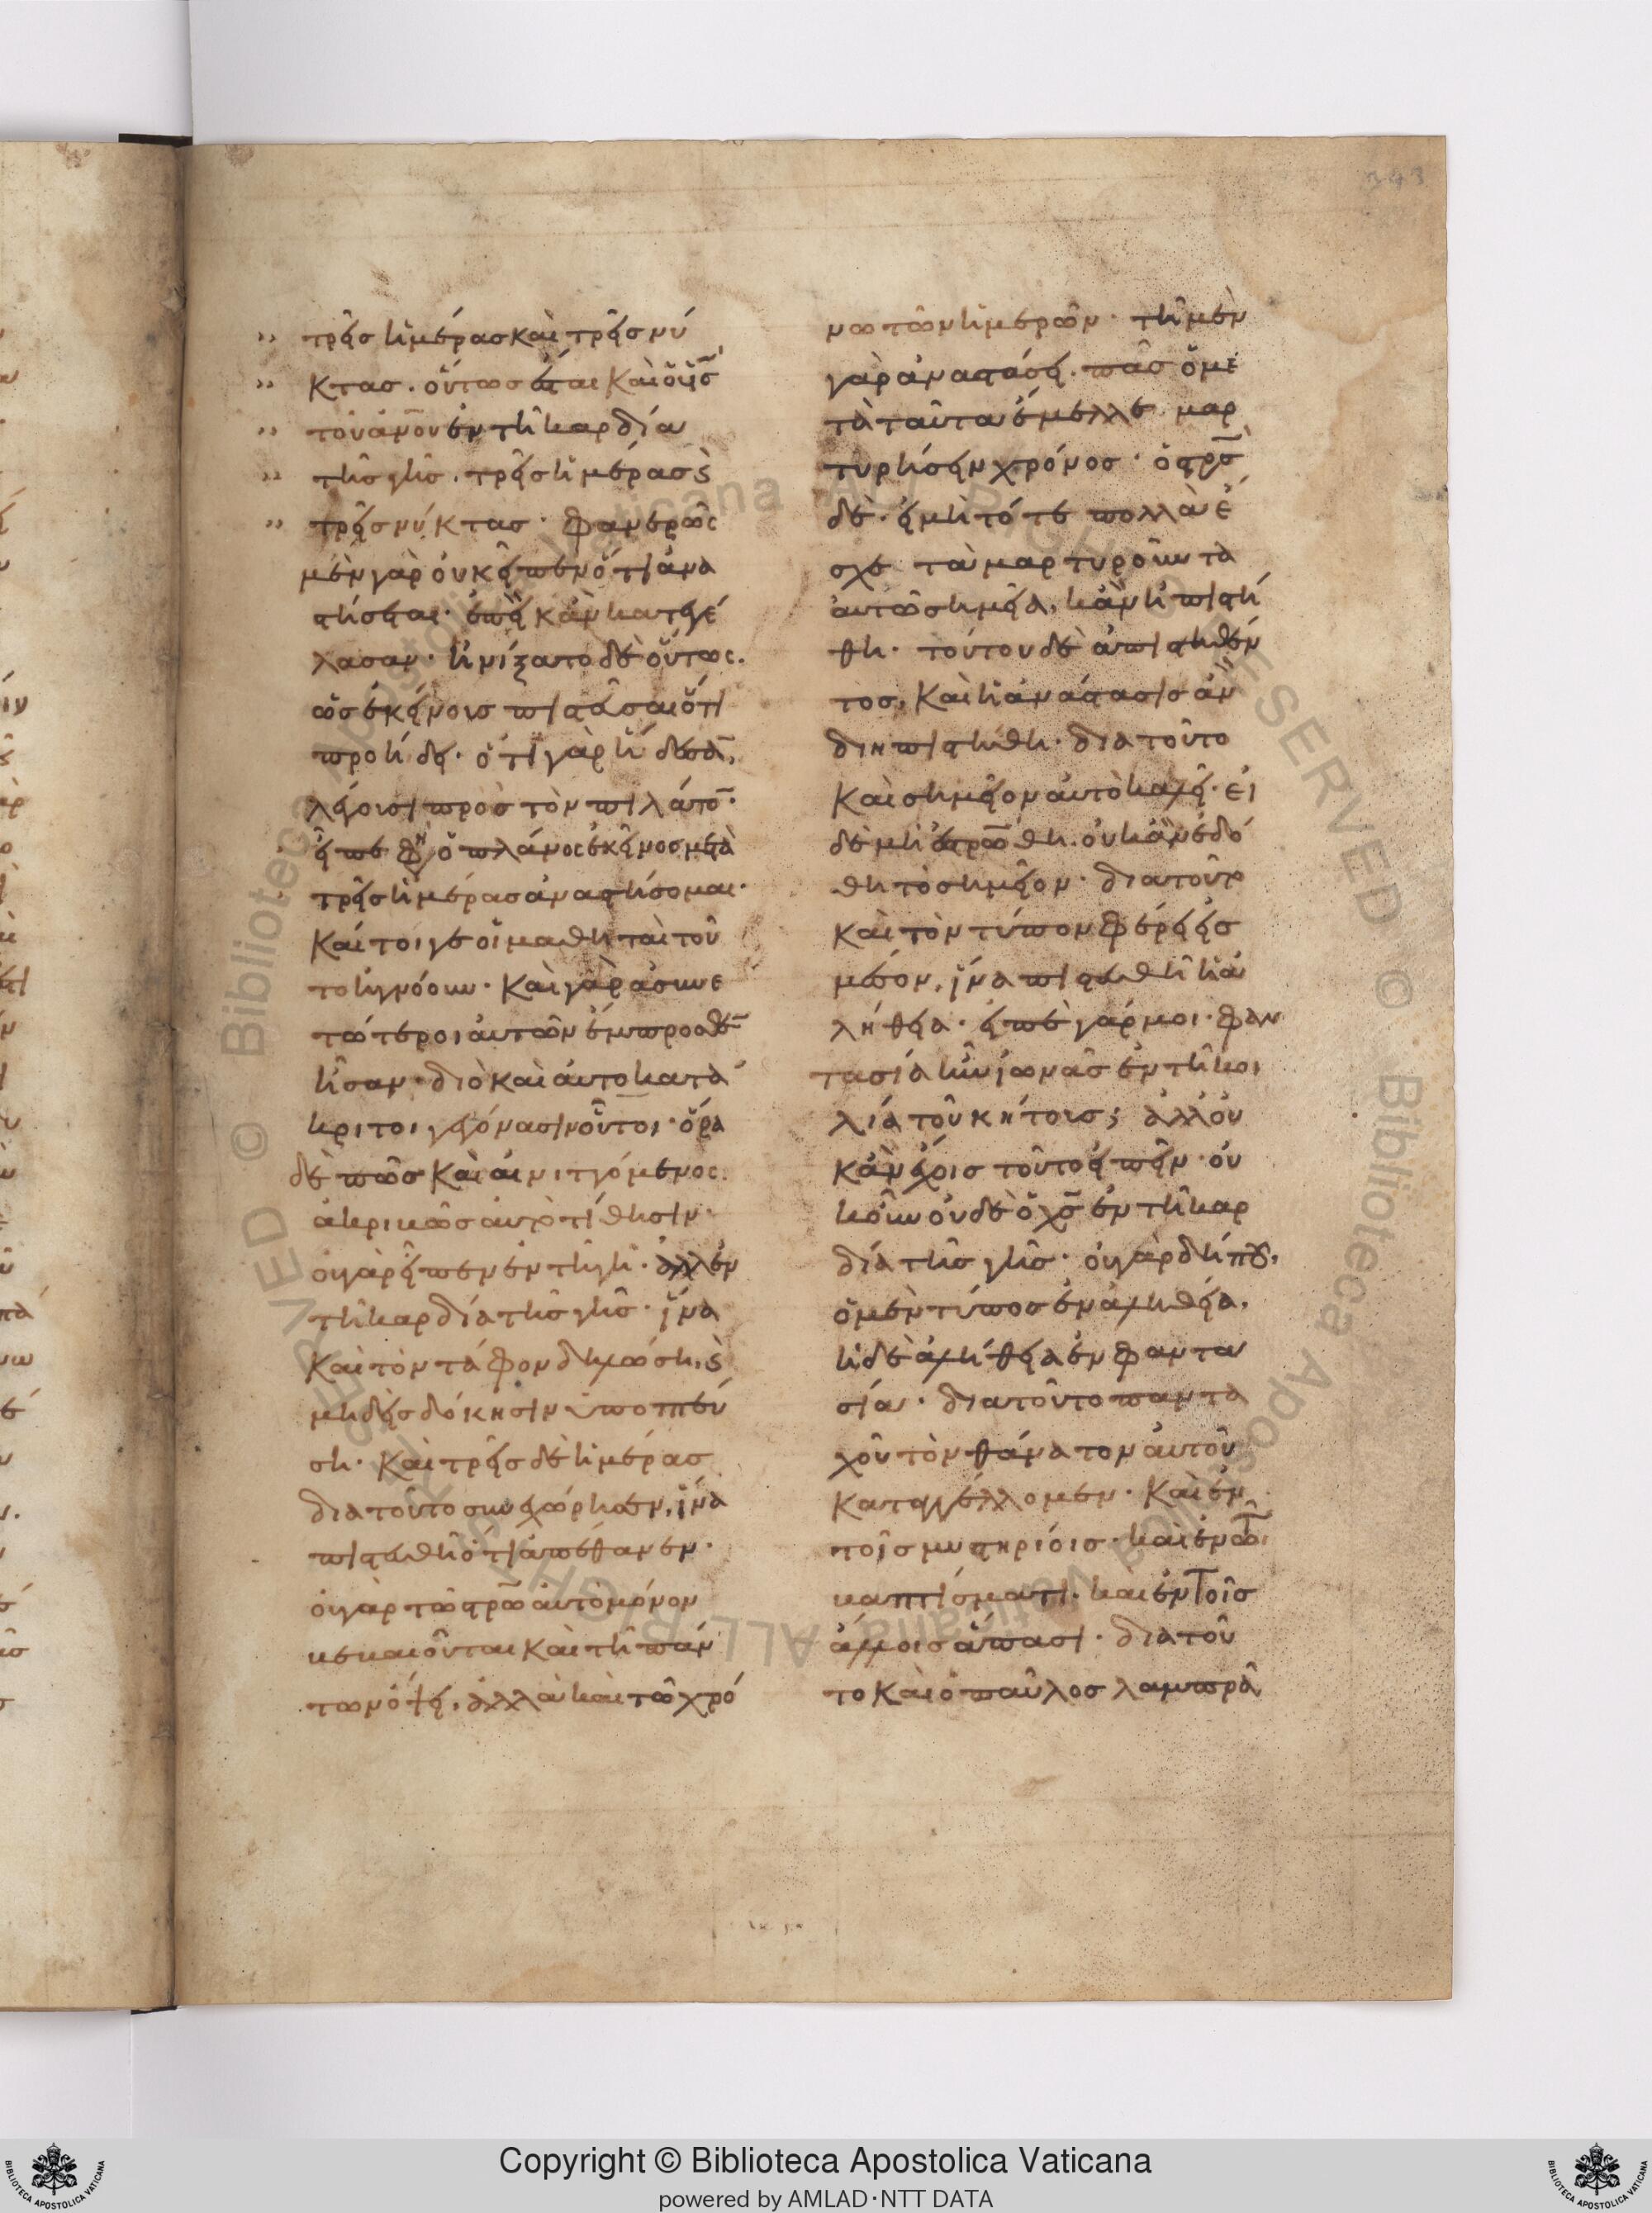 343
τρεῖς ἡμέρας καὶ τρεῖς νύ
κτας. οὕτως ἔσται καὶ ὁ υἱὸς
τοῦ ἀνου ἐν τῆ καρδία
τῆς γῆς. τρεῖς ἡμέρας ϗ
τρεῖς νύκτας· φανερῶς
μὲν γὰρ οὐκ εἶπεν ὅτι ἀνα
στήσεται· ἐπεὶ κἂν κατεγέ
λασαν· ἠνίξατο δὲ οὕτως.
ὡς ἐκείνοις πιστεῦσαι ὅτι
προήδει· ὅτι γὰρ ἤδεσαν,
λέγουσι πρὸς τὸν πιλάτον·
εἶπεν φη ὁ πλάνος ἐκεῖνος μετὰ
τρεῖς ἡμέρας ἀναστήσομαι·
καίτοιγε οἱ μαθηταὶ τοῦ
το ἠγνόουν· καὶ γὰρ ἀσυνε
τώτεροι αὐτῶν ἔμπροσθεν
ἦσαν· διὸ καὶ αὐτοκατά
κριτοι γεγόνασιν οὗτοι· ὅρα
δὲ πῶς καὶ αἰνιττόμενος.
ἀκριβῶς αὐτὸ τίθησιν·
οὐ γὰρ εἶπεν ἐν τῆ γῆ· ἀλλ ἐν
τῆ καρδία τῆς γῆς· ἵνα
καὶ τὸν τάφον δηλώση, ϗ
μηδεὶς δόκησιν ὑποπτεύ
ση· καὶ τρεῖς δὲ ἡμέρας
διατοῦτο συνεχώρησεν, ἵνα
πιστευθῆ ὅτι ἀπέθανεν·
οὐ γὰρ τῶ στρω αὐτὸ μόνον
βεβαιοῦται καὶ τῆ πάν
των ὄψει, ἀλλὰ καὶ τῶ χρό
νω τῶν ἡμερῶν· τῆ μὲν
γὰρ ἀναστάσει. πᾶς ὁ με
τὰ ταῦτα ἔμελλε μαρ
τυρήσειν χρόνος· ὁ στρς
δὲ. εἰ μὴ τότε πολλὰ ἔ
σχε τὰ μαρτυροῦντα
αὐτῶ σημεῖα, κἂν ἠπιστή
θη· τούτου δὲ ἀπιστηθέν
τος, καὶ ἡ ἀνάστασις ἂν
διηπιστήθη· διατοῦτο
καὶ σημεῖον αὐτὸ καλεῖ· εἰ
δὲ μὴ ἐστρώθη. οὐκ ἂν ἐδό
θη τὸ σημεῖον· διατοῦτο
καὶ τὸν τύπον φέρει εἰς
μέσον, ἵνα πιστευθῆ ἡ ἀ
λήθεια· εἰπὲ γάρ μοι· φαν
τασία ἦν ἰωνᾶς ἐν τῆ κοι
λία τοῦ κήτους; ἀλλ οὐ
κ ἂν ἔχοις τοῦτο εἰπεῖν· οὐ
κοῦν οὐδὲ ὁ χς ἐν τῆ καρ
δία τῆς γῆς· οὐ γὰρ δήπου,
ὁ μὲν τύπος ἐν ἀληθεία,
ἡ δὲ ἀλήθεια ἐν φαντα
σία· διατοῦτο πανταχοῦ
χοῦ τὸν θάνατον αὐτοῦ
καταγγέλλομεν· καὶ ἐν
τοῖς μυστηρίοις· καὶ ἐν τῶ
βαπτίσματι· καὶ ἐν τοῖς
ἄλλοις ἅπασι· διατοῦ
το καὶ ὁ παῦλος λαμπρᾶ
Copyright © Biblioteca Apostolica Vaticana
powered by AMLAD·NTT DATA